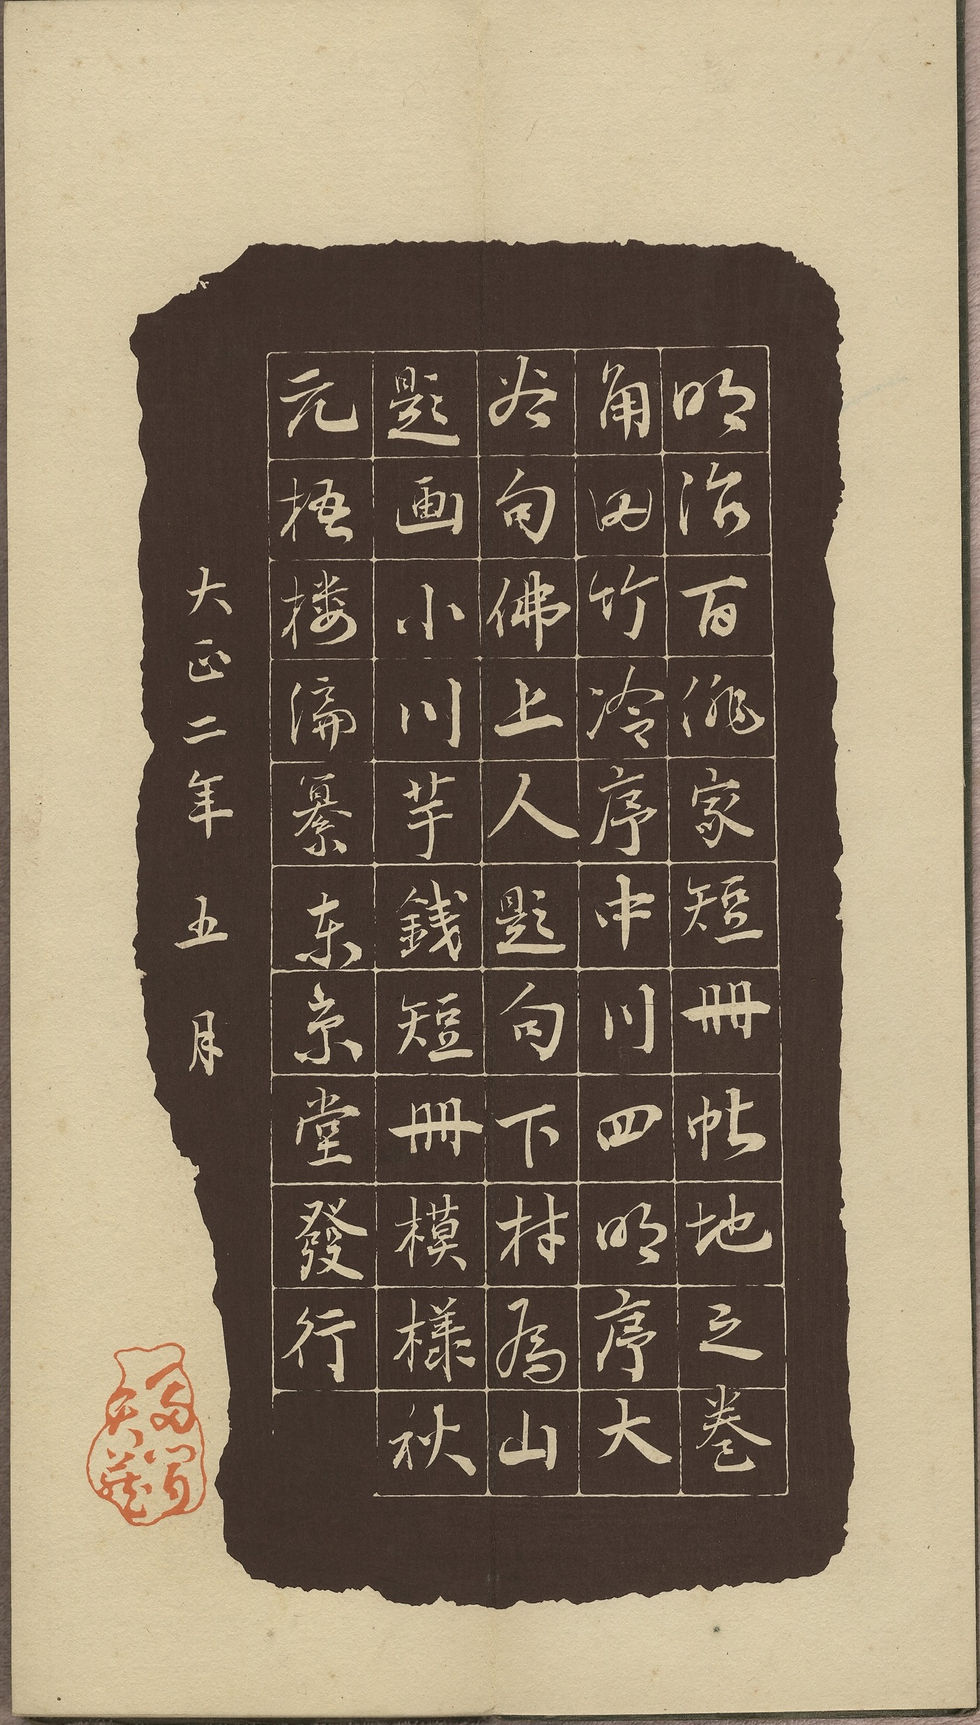 明治百俳家短冊帖地之巻
角田竹冷序中川四明序大
谷句佛上人題句下村為山
題画小川芋銭短冊模様秋
元梧楼编纂东京堂發行
大正二年五月